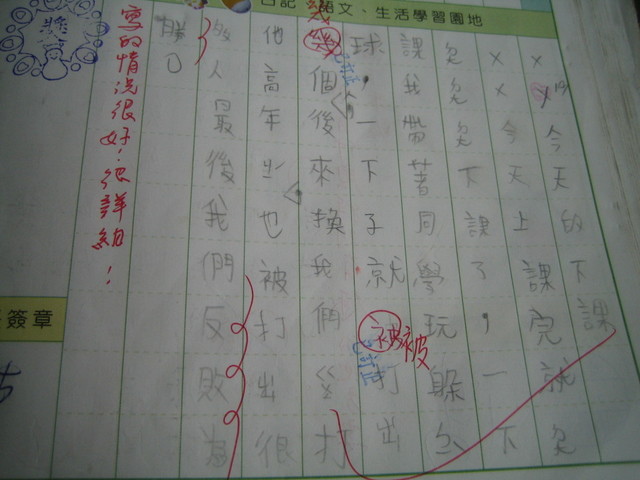 文、生活學習園地
今天的下課
今天上課完就
下課了，一下
課我帶著同學玩躲
球，一下子就被打出
幾
幾個後來換我們 打
被
他高年 也被打出很
人最後我們反敗為
勝
寫的情況很好！很詳細！
獎
簽章